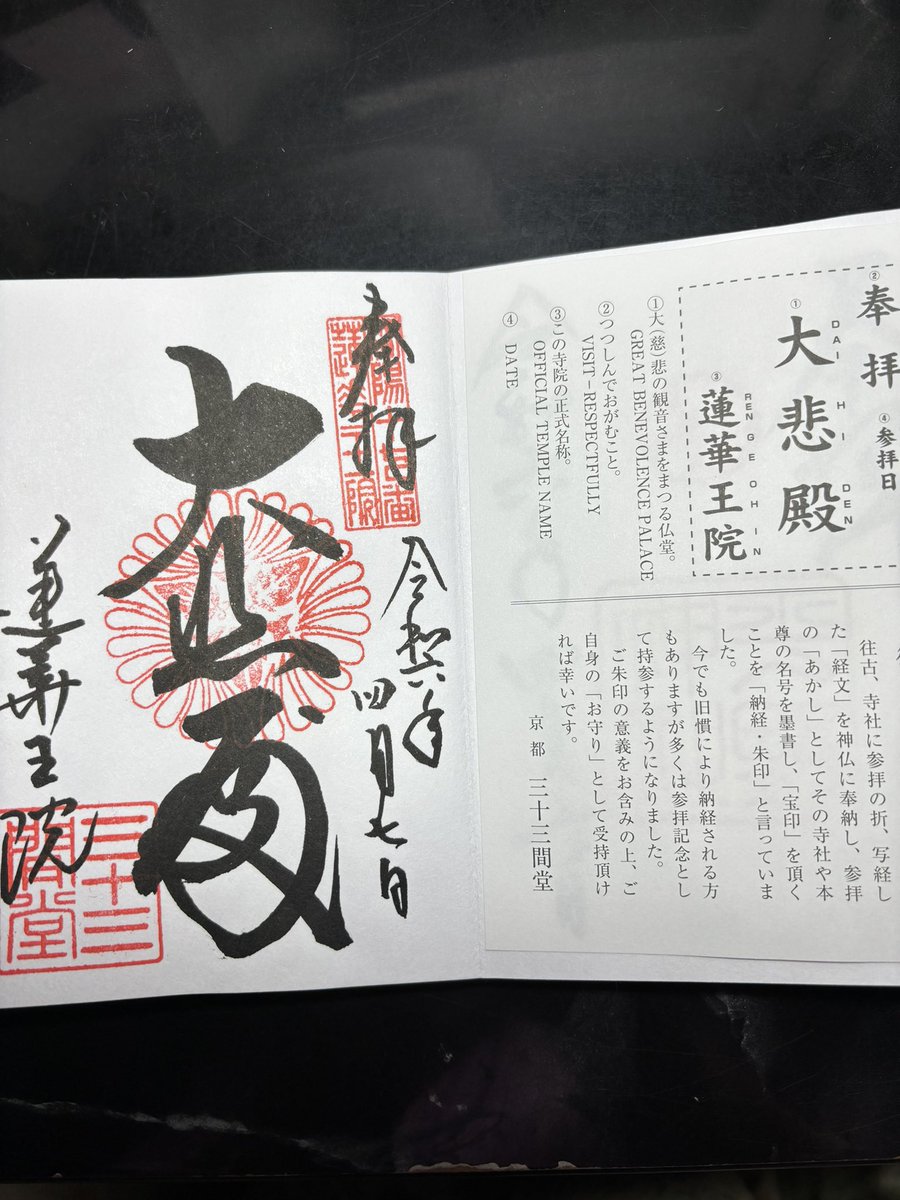 奉拝
大悲殿
令和六年
四月七日
蓮華王院
三十三
間堂
②奉拝
④参拝日
①大悲殿
DAI HI DEN
③蓮華王院
REN GE OH IN
①大(慈)悲の観音さまをまつる仏堂。
GREAT BENEVOLENCE PALACE
②つつしんでおがむこと。
VISIT－RESPECTFULLY
③この寺院の正式名称。
OFFICIAL TEMPLE NAME
④ DATE
往古、寺社に参拝の折、写経し
た「経文」を神仏に奉納し、参拝
の「あかし」としてその寺社や本
尊の名号を墨書し、「宝印」を頂く
ことを「納経・朱印」と言っていま
した。
今でも旧慣により納経される方
もありますが多くは参拝記念とし
て持参するようになりました。
ご朱印の意義をお含みの上、ご
自身の「お守り」として受持頂け
れば幸いです。
京都 三十三間堂